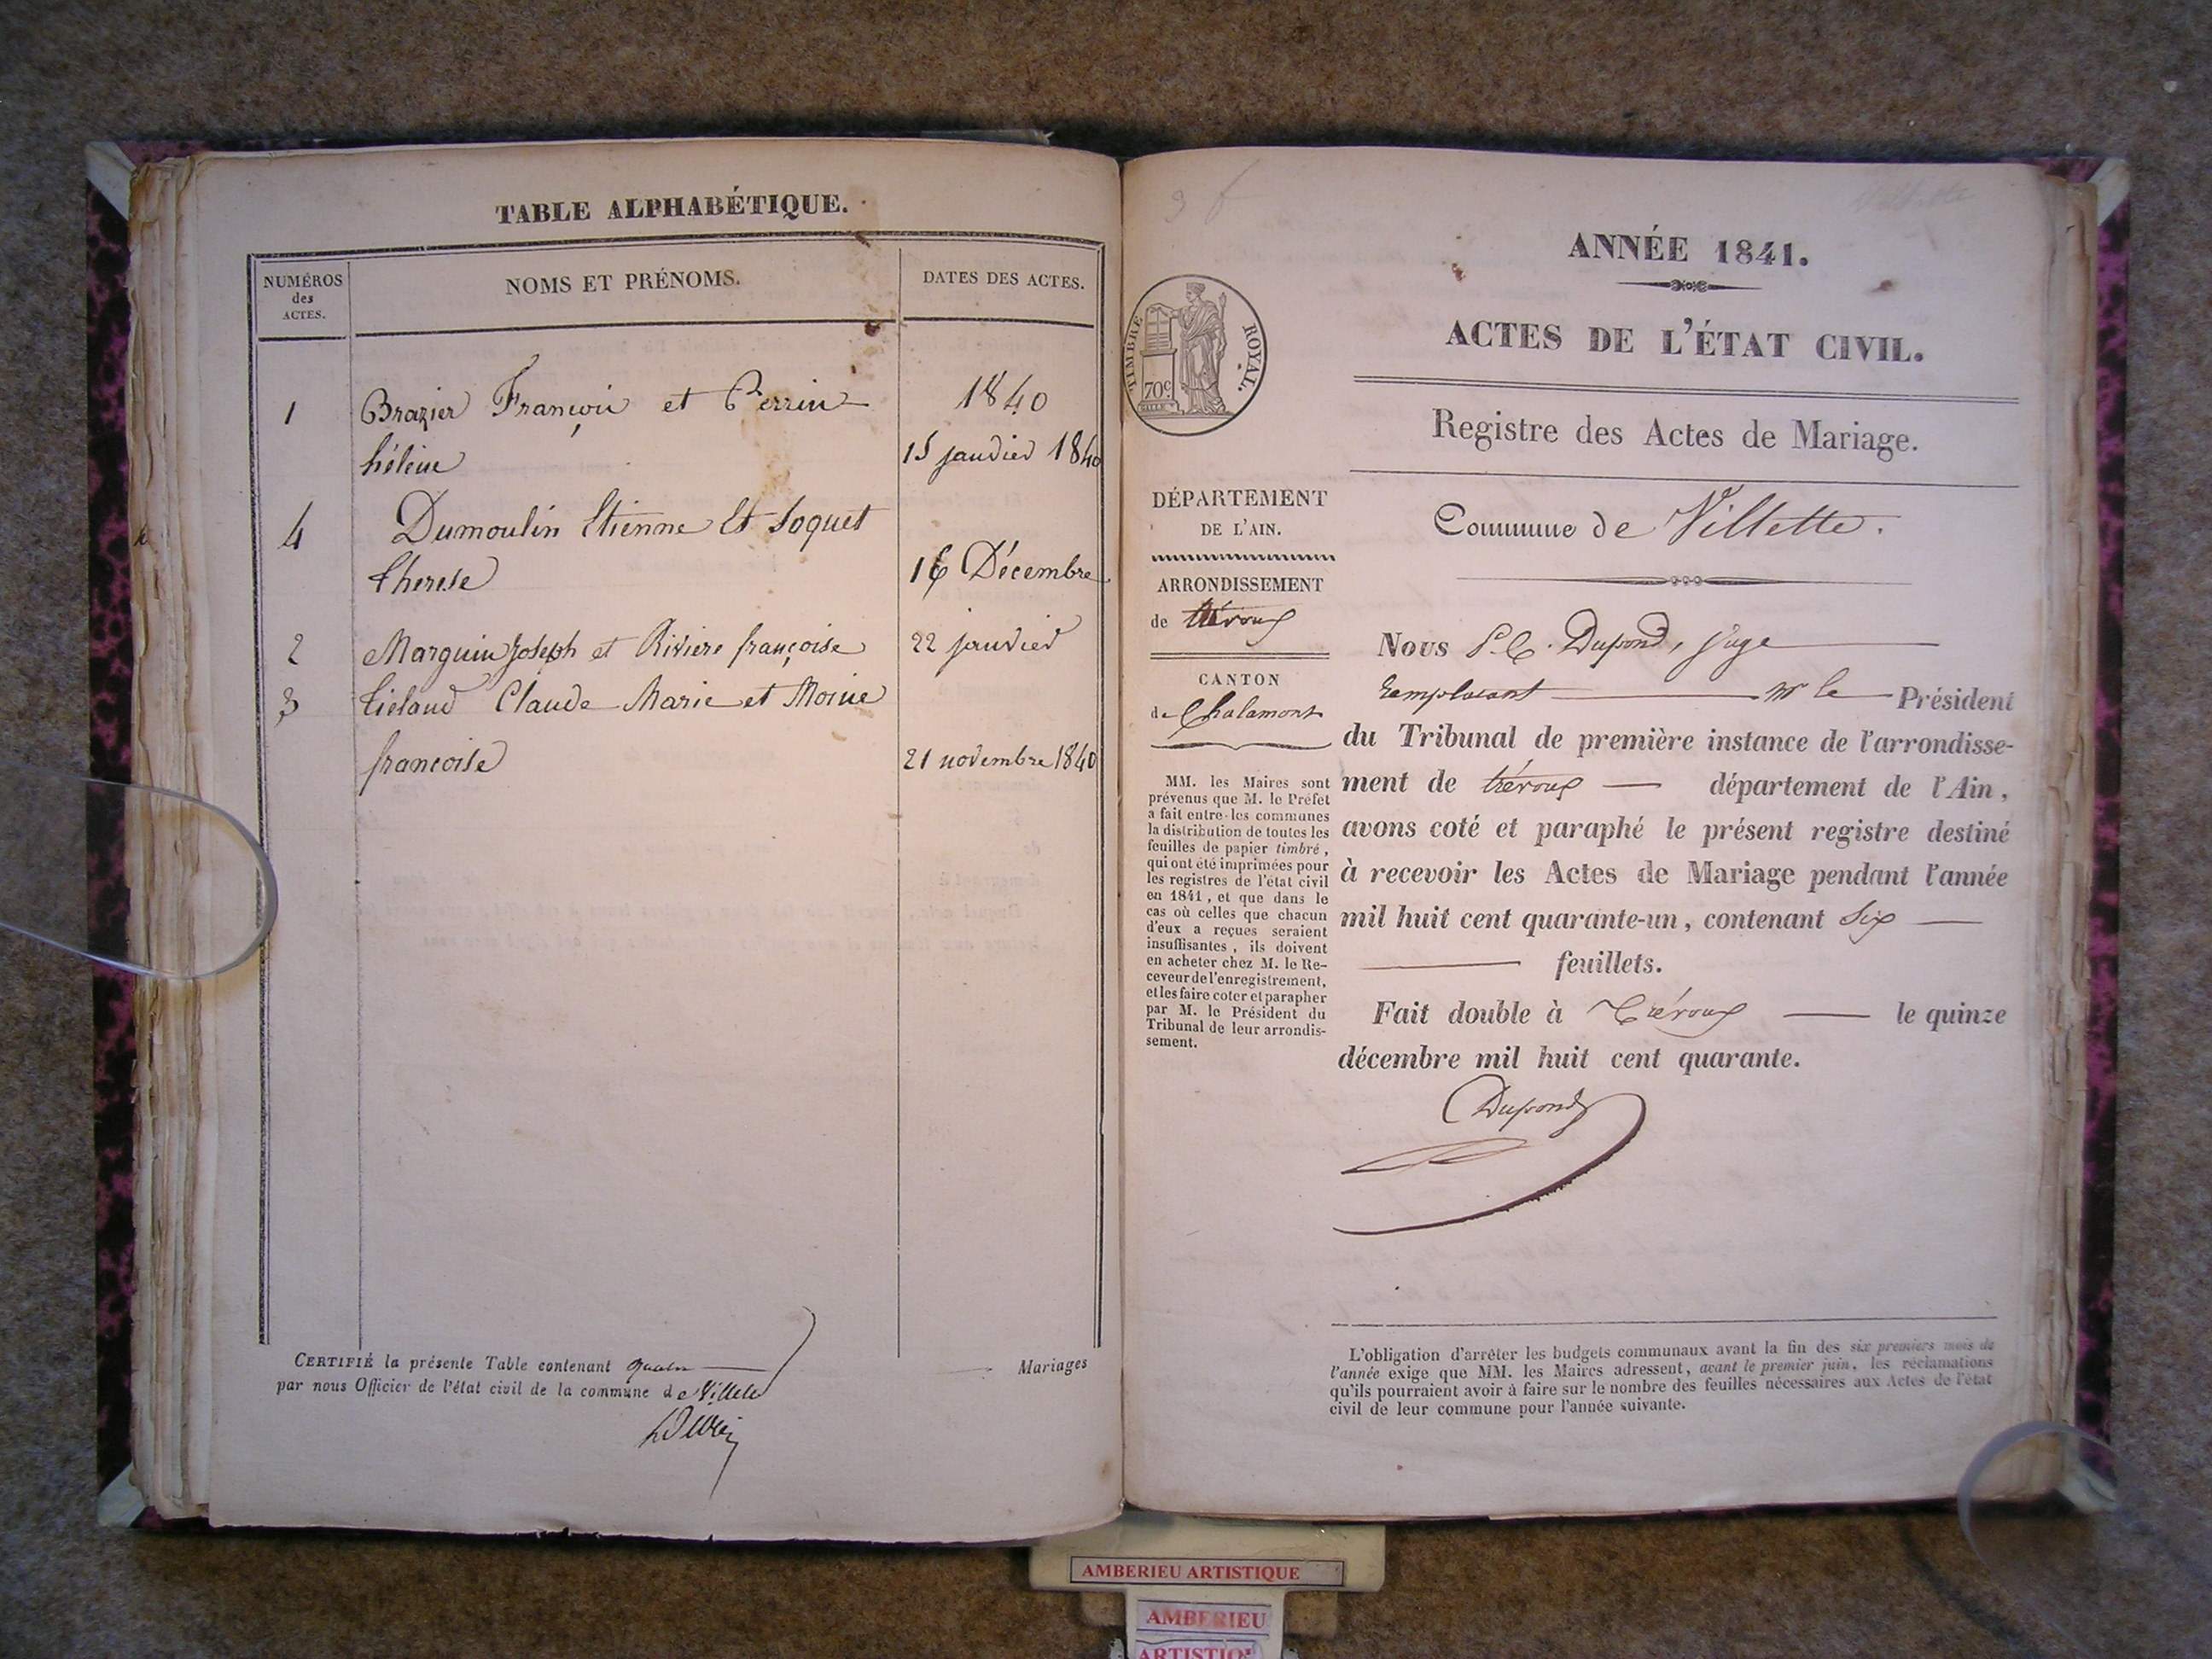 TABLE ALPHABÉTIQUE.
NUMÉROS
des
ACTES.
NOMS ET PRÉNOMS.
DATES DES ACTES.
1 Brazier François et Perrin 1840
hélène 15 janvier 1840
4 Dumoulin Etienne Et Soquet
therese 16 Décembre
2 Marguin Joseph et Riviere françoise 22 janvier
3 Claude Marie et Moine
francoise 21 novembre 1840
CERTIFIÉ la présente Table contenant quatre Mariages
par nous Officier de l'état civil de la commune de Villette
TIMBRE ROYAL.
70c
ANNÉE 1841.
ACTES DE L'ÉTAT CIVIL.
Registre des Actes de Mariage.
DÉPARTEMENT
DE L'AIN.
ARRONDISSEMENT
de trévoux
CANTON
de Chalamont
MM. les Maires sont
prévenus que M. le Préfet
a fait entre les communes
la distribution de toutes les
feuilles de papier timbré,
qui ont été imprimées pour
les registres de l'état civil
en 1841, et que dans le
cas où celles que chacun
d'eux a reçues seraient
insuffisantes, ils doivent
en acheter chez M. le Re-
ceveur de l'enregistrement,
et les faire coter et parapher
par M. le Président du
Tribunal de leur arrondis-
sement.
Commune de Villette.
Nous P. C. Dupond, juge
remplacant mr le Président
du Tribunal de première instance de l'arrondisse-
ment de trévoux département de l'Ain,
avons coté et paraphé le présent registre destiné
à recevoir les Actes de Mariage pendant l'année
mil huit cent quarante-un, contenant Six
feuillets.
Fait double à Trévoux le quinze
décembre mil huit cent quarante.
Dupond
L'obligation d'arrêter les budgets communaux avant la fin des six premiers mois de
l'année exige que MM. les Maires adressent, avant le premier juin, les réclamations
qu'ils pourraient avoir à faire sur le nombre des feuilles nécessaires aux Actes de l'état
civil de leur commune pour l'année suivante.
AMBERIEU ARTISTIQUE
AMBERIEU